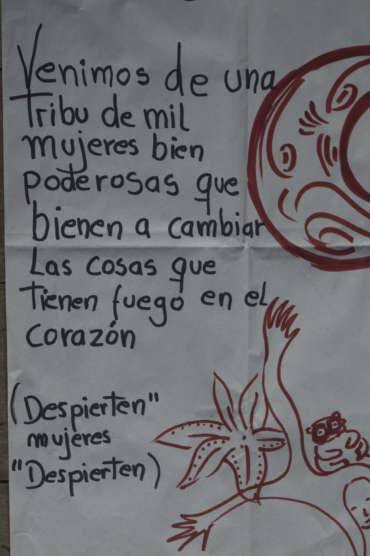 Venimos de una
Tribu de mil
mujeres bien
poderosas que
bienen a cambiar
Las cosas que
tienen fuego en el
corazón
(Despierten"
mujeres
"Despierten)